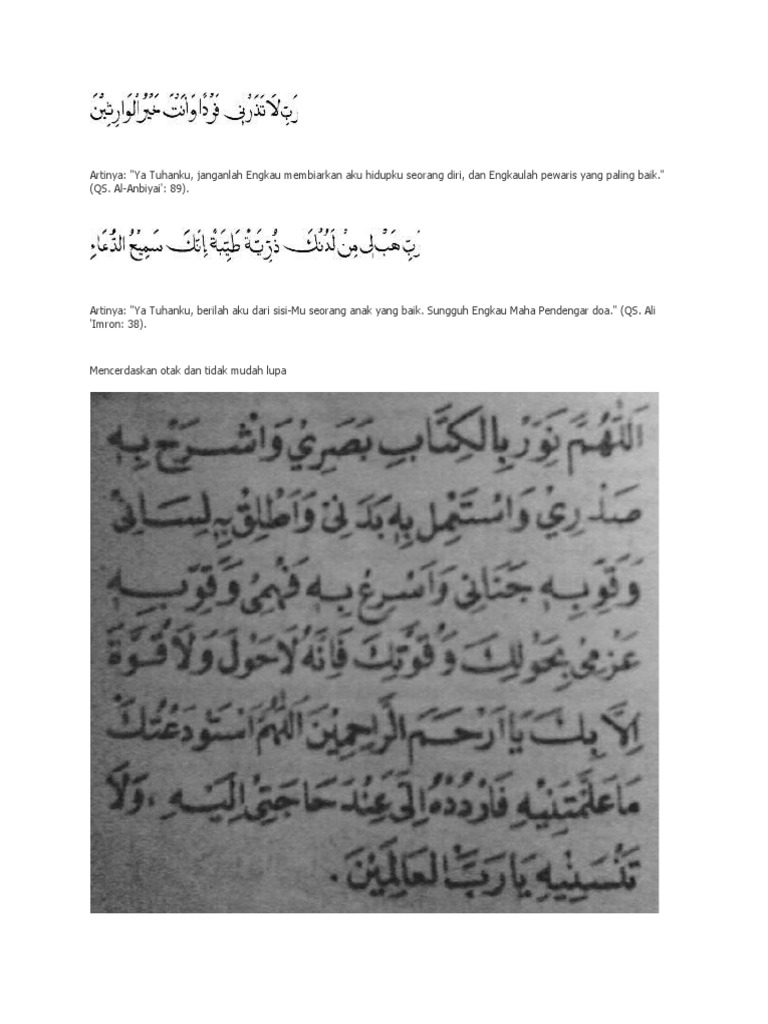 رَبِّ لَا تَذَرْنِي فَرْدًا وَأَنْتَ خَيْرُ الْوَارِثِيْنَ
Artinya: "Ya Tuhanku, janganlah Engkau membiarkan aku hidupku seorang diri, dan Engkaulah pewaris yang paling baik."
(QS. Al-Anbiyai': 89).
رَبِّ هَبْ لِي مِنْ لَدُنْكَ ذُرِّيَّةً طَيِّبَةً إِنَّكَ سَمِيْعُ الدُّعَاءِ
Artinya: "Ya Tuhanku, berilah aku dari sisi-Mu seorang anak yang baik. Sungguh Engkau Maha Pendengar doa." (QS. Ali
'Imron: 38).
Mencerdaskan otak dan tidak mudah lupa
اَللّٰهُمَّ نَوِّرْ بِالْكِتَابِ بَصَرِيْ وَاشْرَحْ بِهِ
صَدْرِيْ وَاسْتَعْمِلْ بِهِ بَدَنِيْ وَاَطْلِقْ بِهِ لِسَانِيْ
وَقَوِّ بِهِ جَنَانِيْ وَاَسْرِعْ بِهِ فَهْمِيْ وَقَوِّ بِهِ
عَزْمِيْ بِحَوْلِكَ وَقُوَّتِكَ فَاِنَّهُ لَا حَوْلَ وَلَا قُوَّةَ
اِلَّا بِكَ يَا اَرْحَمَ الرَّاحِمِيْنَ اَللّٰهُمَّ اَسْتَوْدَعْتُكَ
مَا عَلَّمْتَنِيْهِ فَارْدُدْهُ اِلَيَّ عِنْدَ حَاجَتِيْ اِلَيْهِ ، وَلَا
تَنْسَنِيْهِ يَا رَبَّ الْعَالَمِيْنَ .